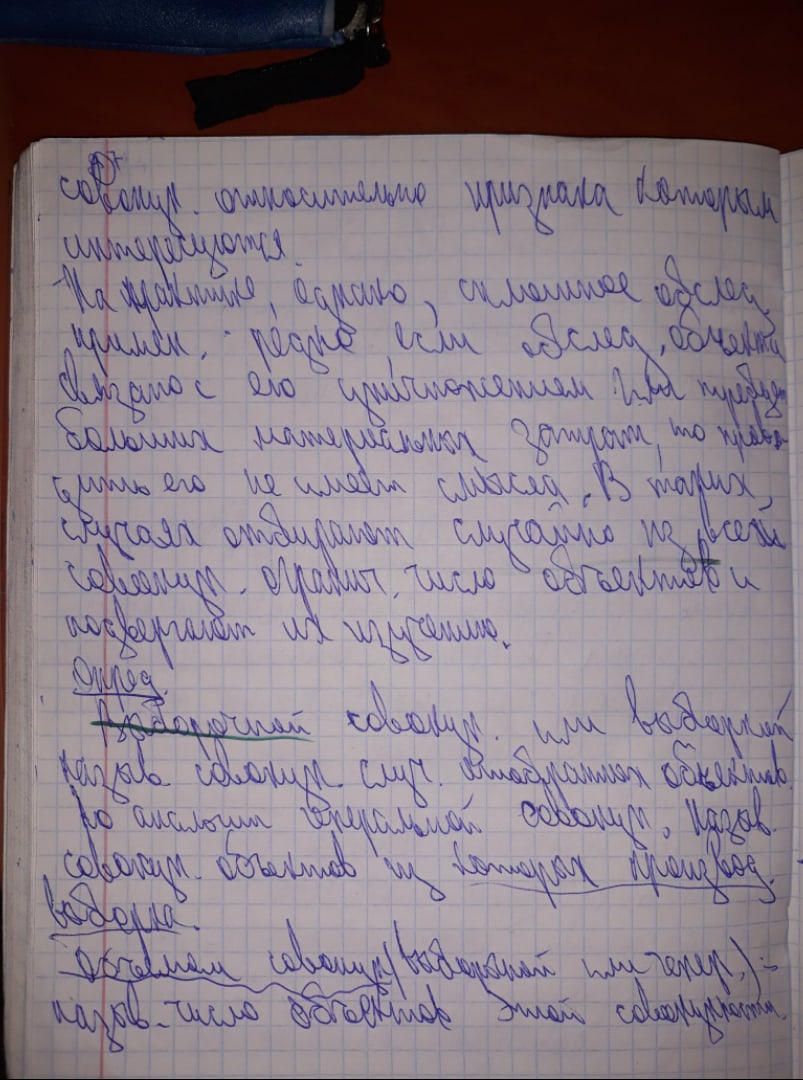 совокуп. относительно признака которым
интересуются.
На практике, однако, сплошное обслед.
примен. редко, если обслед. объекта
связано с его уничтожением или требует
больших материальных затрат, то прово
дить его не имеет смысла. В таких
случаях отбирают случайно из всей
совокуп. огранич. число объектов и
подвергают их изучению.
Опред.
Выборочной совокуп. или выборкой
назыв совокуп. случ. отобранных объектов.
По аналогии генеральной совокуп. назыв.
совокуп. объектов из которых производ.
выборка.
Объемом совокуп (выборочной или генер.) -
назыв. число объектов этой совокупности.